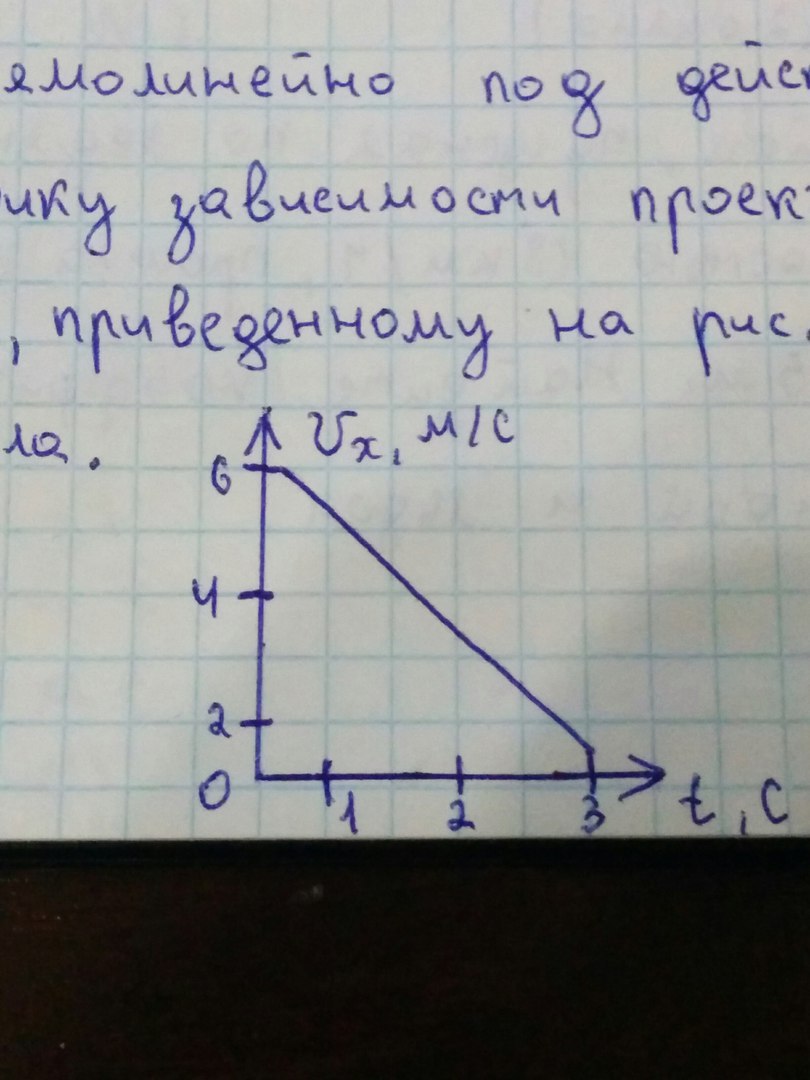 ямолинейно под дейс
ику зависимости проек
, приведенному на рис.
ла.
Vx, м/с
6
4
2
0
1 2 3 t, с